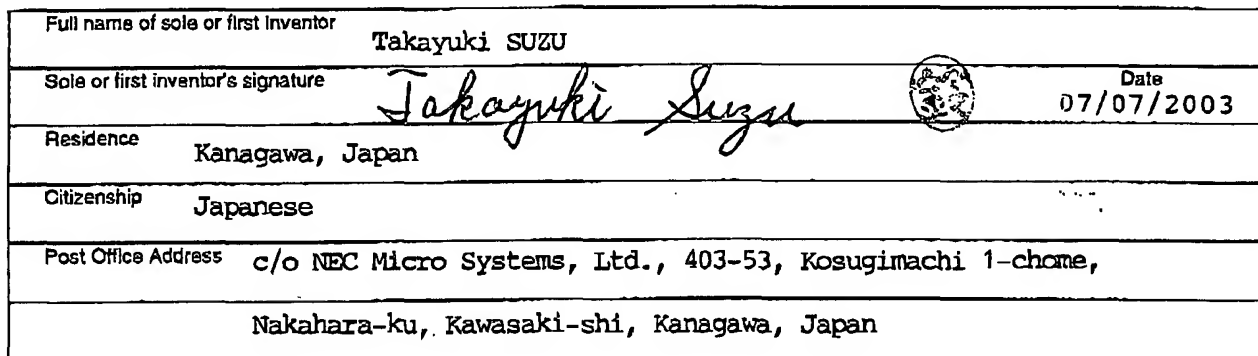 Full name of sole or first inventor
Takayuki SUZU
Sole or first inventor's signature
Takayuki Suzu
Date
07/07/2003
Residence
Kanagawa, Japan
Citizenship
Japanese
Post Office Address
c/o NEC Micro Systems, Ltd., 403-53, Kosugimachi 1-chome,
Nakahara-ku, Kawasaki-shi, Kanagawa, Japan